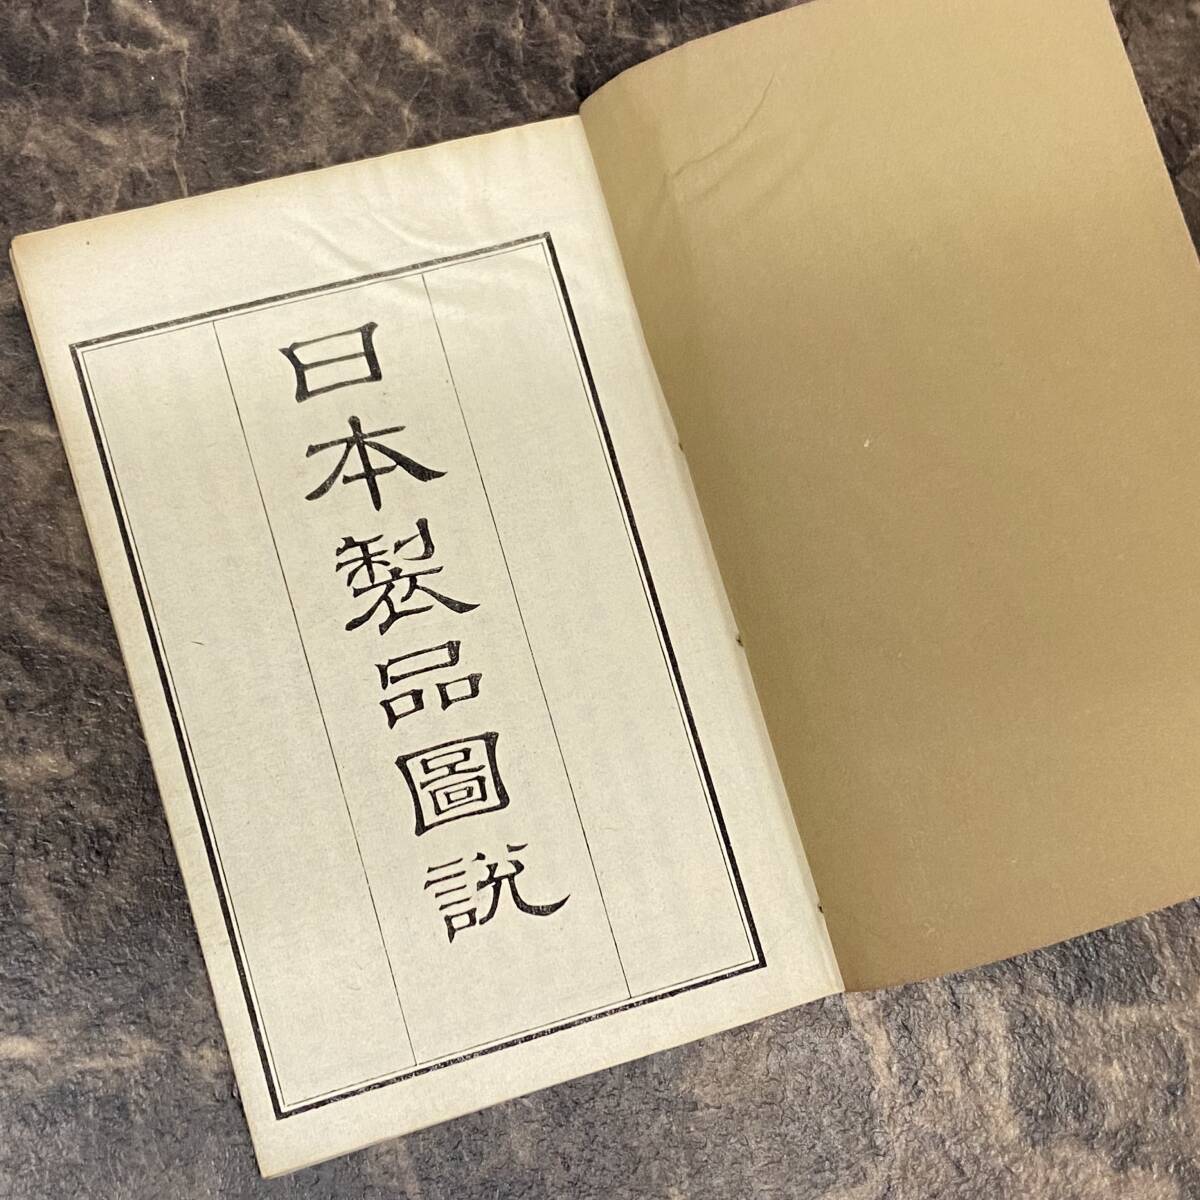 日本製品圖説